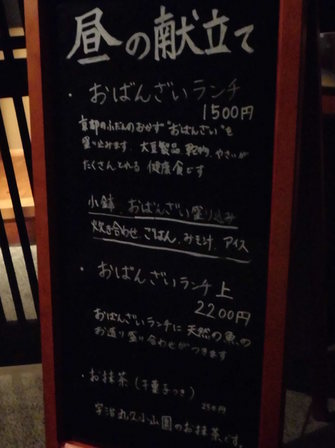 昼の献立て
・おばんざいランチ
1500円
京都のふだんのおかず"おばんざい"を
盛り込みます。大豆製品、乾物、やさいが
たくさんとれる 健康食です
小鉢、おばんざい盛り込み
炊き合わせ、ごはん、みそ汁、アイス
・おばんざいランチ上
2200円
おばんざいランチに天然の魚の
お造り盛り合わせがつきます
・お抹茶(干菓子つき)
円
宇治丸久小山園のお抹茶です